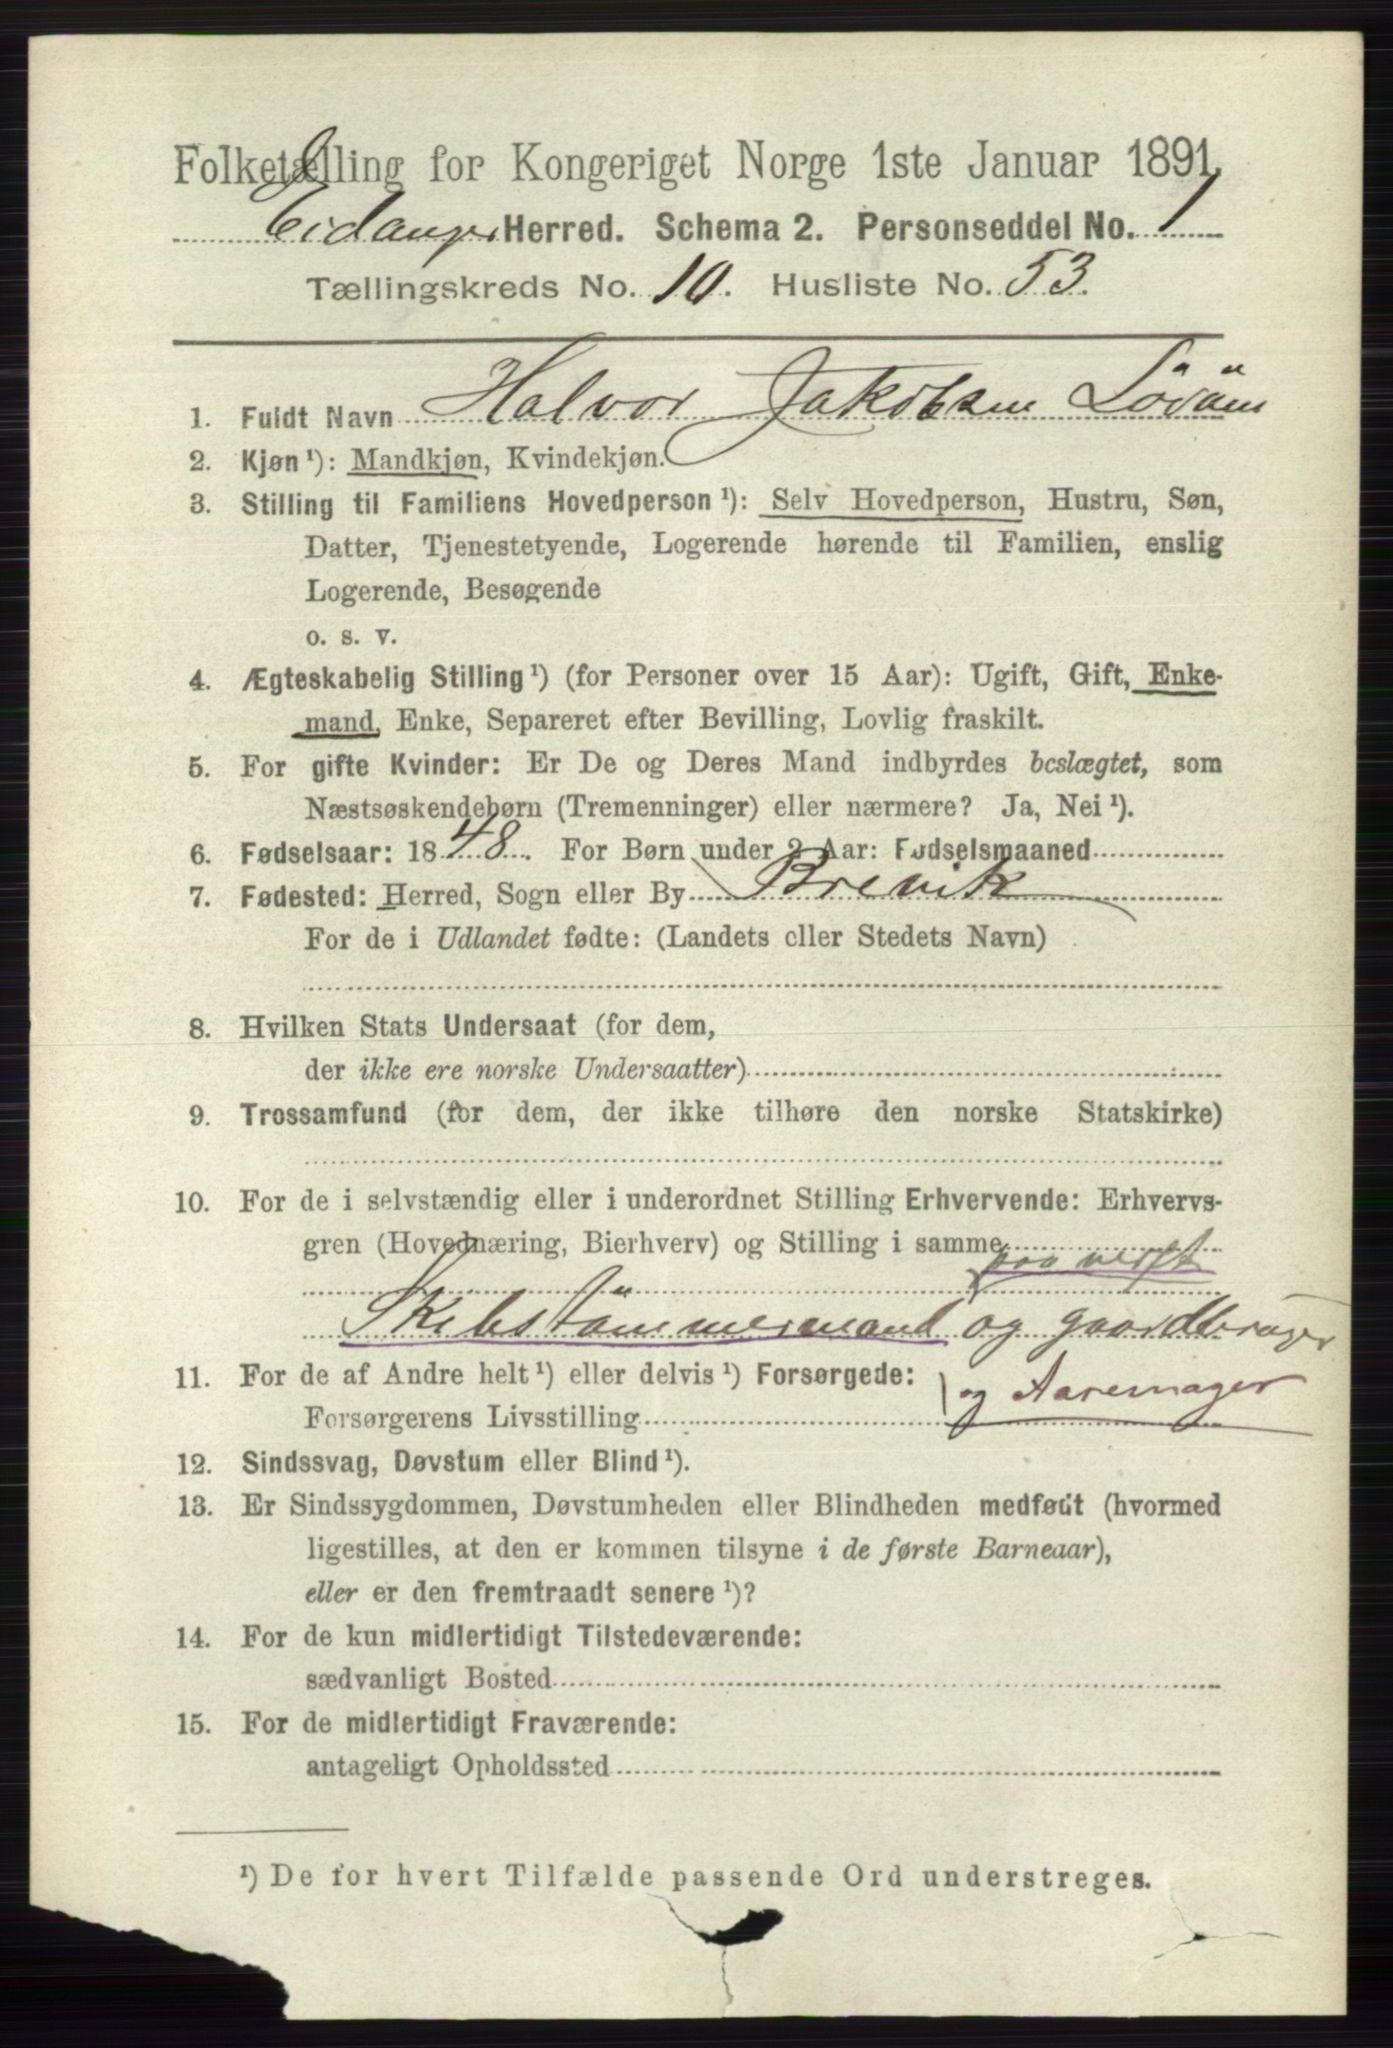 Folketælling for Kongeriget Norge 1ste Januar 1891.
Eidanger Herred. Schema 2. Personseddel No. 1
Tællingskreds No. 10. Husliste No. 53.
1. Fuldt Navn Halvor Jakobsen
2. Kjøn¹): Mandkjøn, Kvindekjøn.
3. Stilling til Familiens Hovedperson¹): Selv Hovedperson, Hustru, Søn,
Datter, Tjenestetyende, Logerende hørende til Familien, enslig
Logerende, Besøgende
o. s. v.
4. Ægteskabelig Stilling¹) (for Personer over 15 Aar): Ugift, Gift, Enke-
mand, Enke, Separeret efter Bevilling, Lovlig fraskilt.
5. For gifte Kvinder: Er De og Deres Mand indbyrdes beslægtet, som
Næstsøskendebørn (Tremenninger) eller nærmere? Ja, Nei¹).
6. Fødselsaar: 1848. For Børn under 2 Aar: Fødselsmaaned
7. Fødested: Herred, Sogn eller By Brevik
For de i Udlandet fødte: (Landets eller Stedets Navn)
8. Hvilken Stats Undersaat (for dem,
der ikke ere norske Undersaatter)
9. Trossamfund (for dem, der ikke tilhøre den norske Statskirke)
10. For de i selvstændig eller i underordnet Stilling Erhvervende: Erhvervs-
gren (Hovednæring, Bierhverv) og Stilling i samme
paa verft
Skibstömmermand og gaardbruger
11. For de af Andre helt¹) eller delvis¹) Forsørgede:
og Aaremager
Forsørgerens Livsstilling
12. Sindssvag, Døvstum eller Blind¹).
13. Er Sindssygdommen, Døvstumheden eller Blindheden medfødt (hvormed
ligestilles, at den er kommen tilsyne i de første Barneaar),
eller er den fremtraadt senere¹)?
14. For de kun midlertidigt Tilstedeværende:
sædvanligt Bosted
15. For de midlertidigt Fraværende:
antageligt Opholdssted
¹) De for hvert Tilfælde passende Ord understreges.